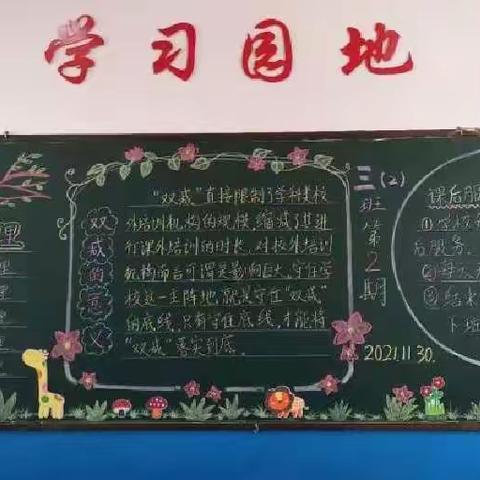 学习园地
理
理
理
理
理
双减的意义
"双减"直接限制了学科类校
外培训机构的规模，缩减了其进
行课外培训的时长，对校外培训
机构而言可谓是影响巨大，守住学
校这一主阵地，就是守住"双减"
的底线，只有守住底线，才能将
"双减"落实到底。
三(2)
班第2期
2021.11.30.
课后服
①学校
后服务。
②
③结束
下班